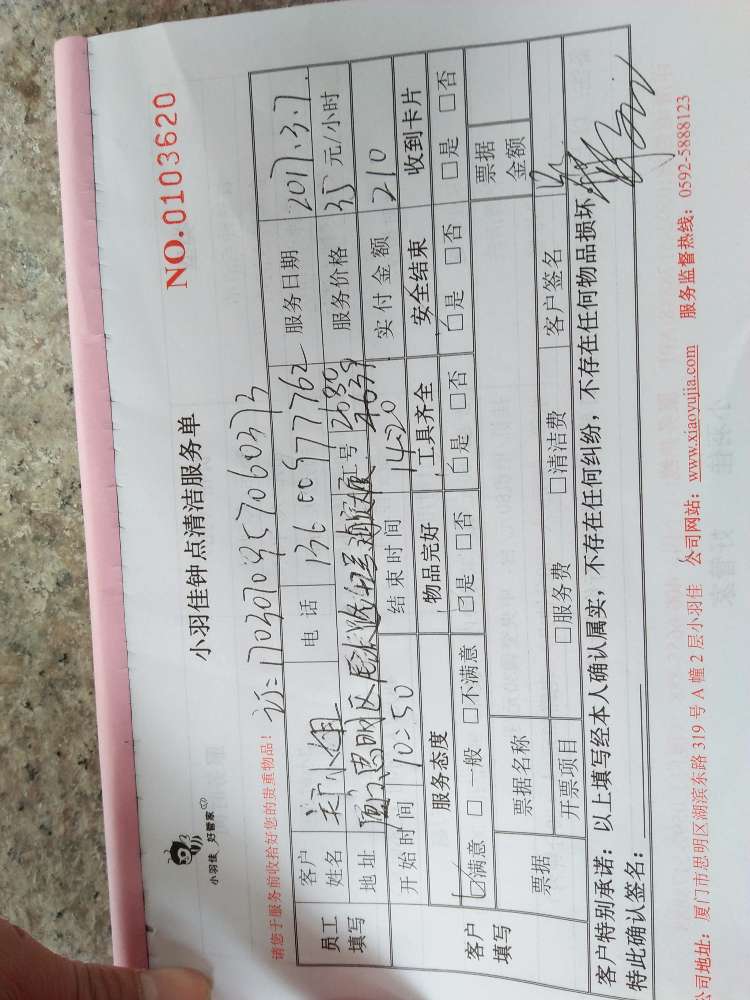 小羽佳 好管家
NO.0103620
小羽佳钟点清洁服务单
请您于服务前收拾好您的贵重物品!
员工填写
客户姓名
电话
服务日期 2017.3.7
地址
服务价格 35 元/小时
开始时间 10:50 结束时间 14:20 实付金额 210
客户填写
服务态度 物品完好 工具齐全 安全结束 收到卡片
□满意 □一般 □不满意 □是 □否 □是 □否 □是 □否 □是 □否
票据 票据名称 票据金额
开票项目 □服务费 □清洁费 客户签名
客户特别承诺:以上填写经本人确认属实,不存在任何纠纷,不存在任何物品损坏,
特此确认签名:
公司地址:厦门市思明区湖滨东路 319 号 A 幢 2 层小羽佳 公司网站:www.xiaoyujia.com 服务监督热线:0592-5888123